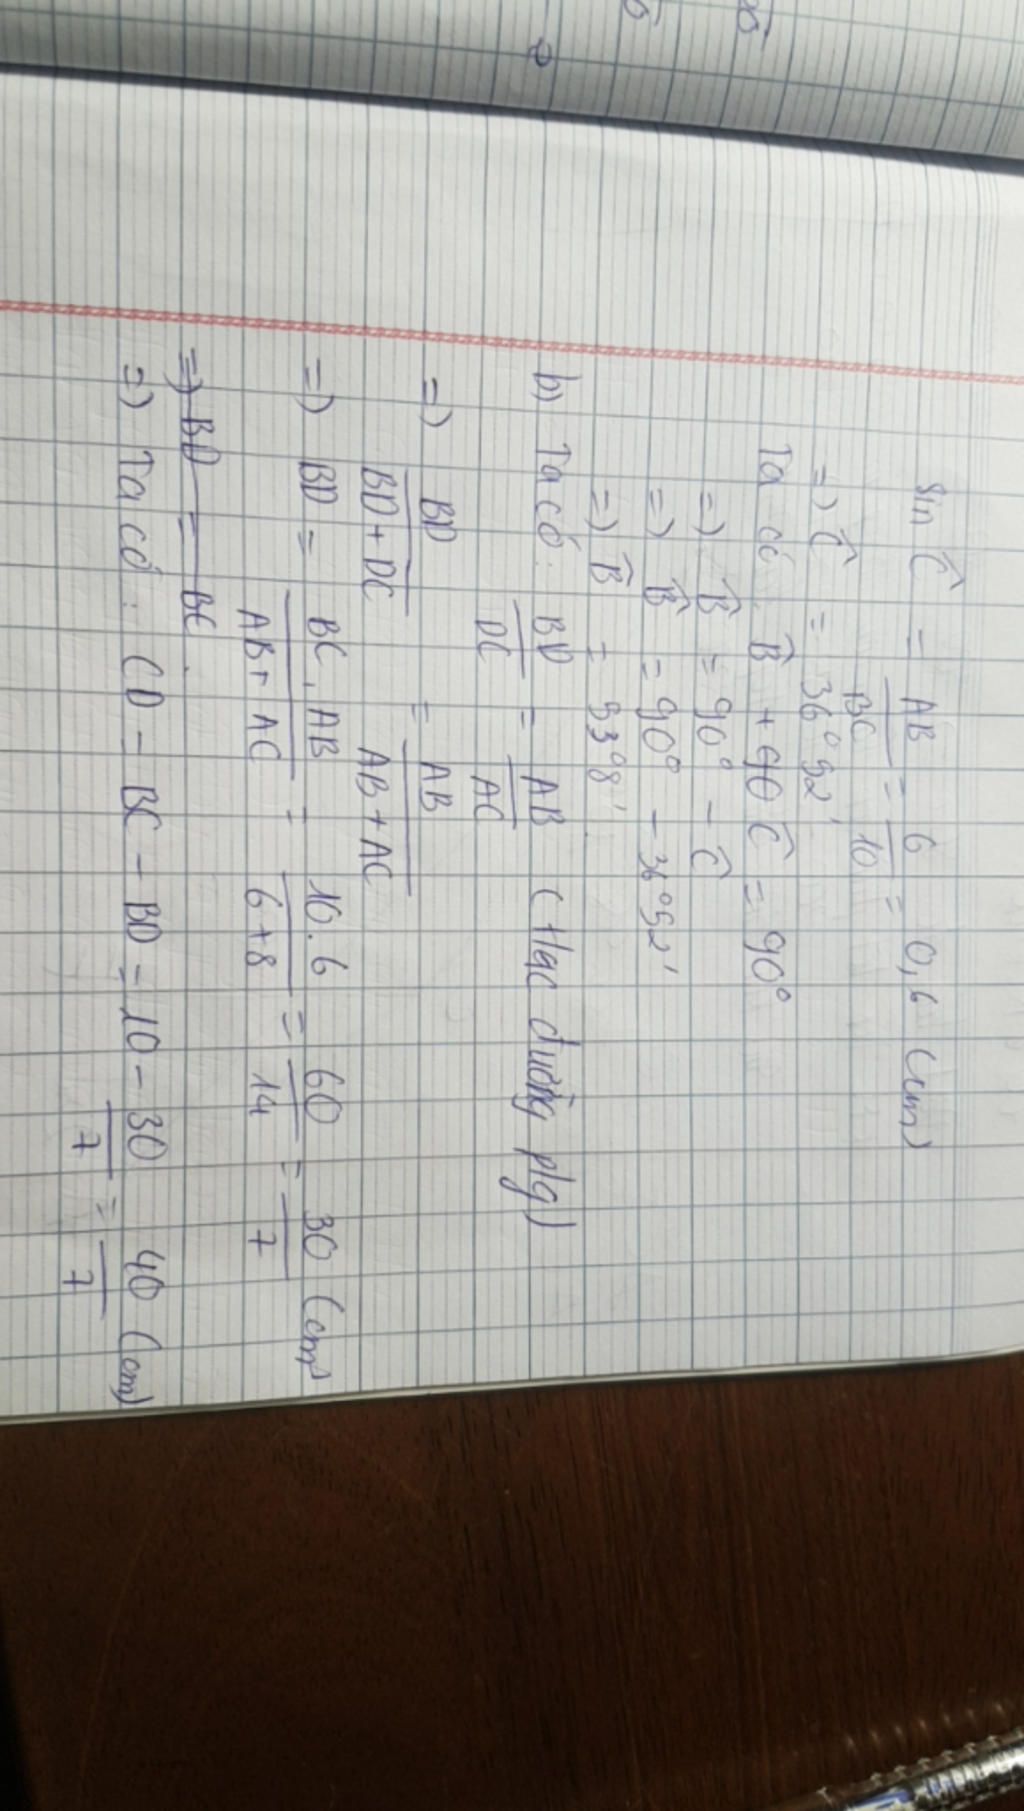 sin Ĉ = AB/BC = 6/10 = 0,6 (cm)
=) Ĉ = 36°52'
Ta có B̂ + Ĉ = 90°
=) B̂ = 90° - Ĉ
=) B̂ = 90° - 36°52'
=) B̂ = 53°8'
b) Ta có: BD/DC = AB/AC (t/c đường p/g)
=) BD/BD+DC = AB/AB+AC
=) BD = BC.AB/AB+AC = 10.6/6+8 = 60/14 = 30/7 (cm)
=) BD = BC
=) Ta có: CD = BC - BD = 10 - 30/7 = 40/7 (cm)